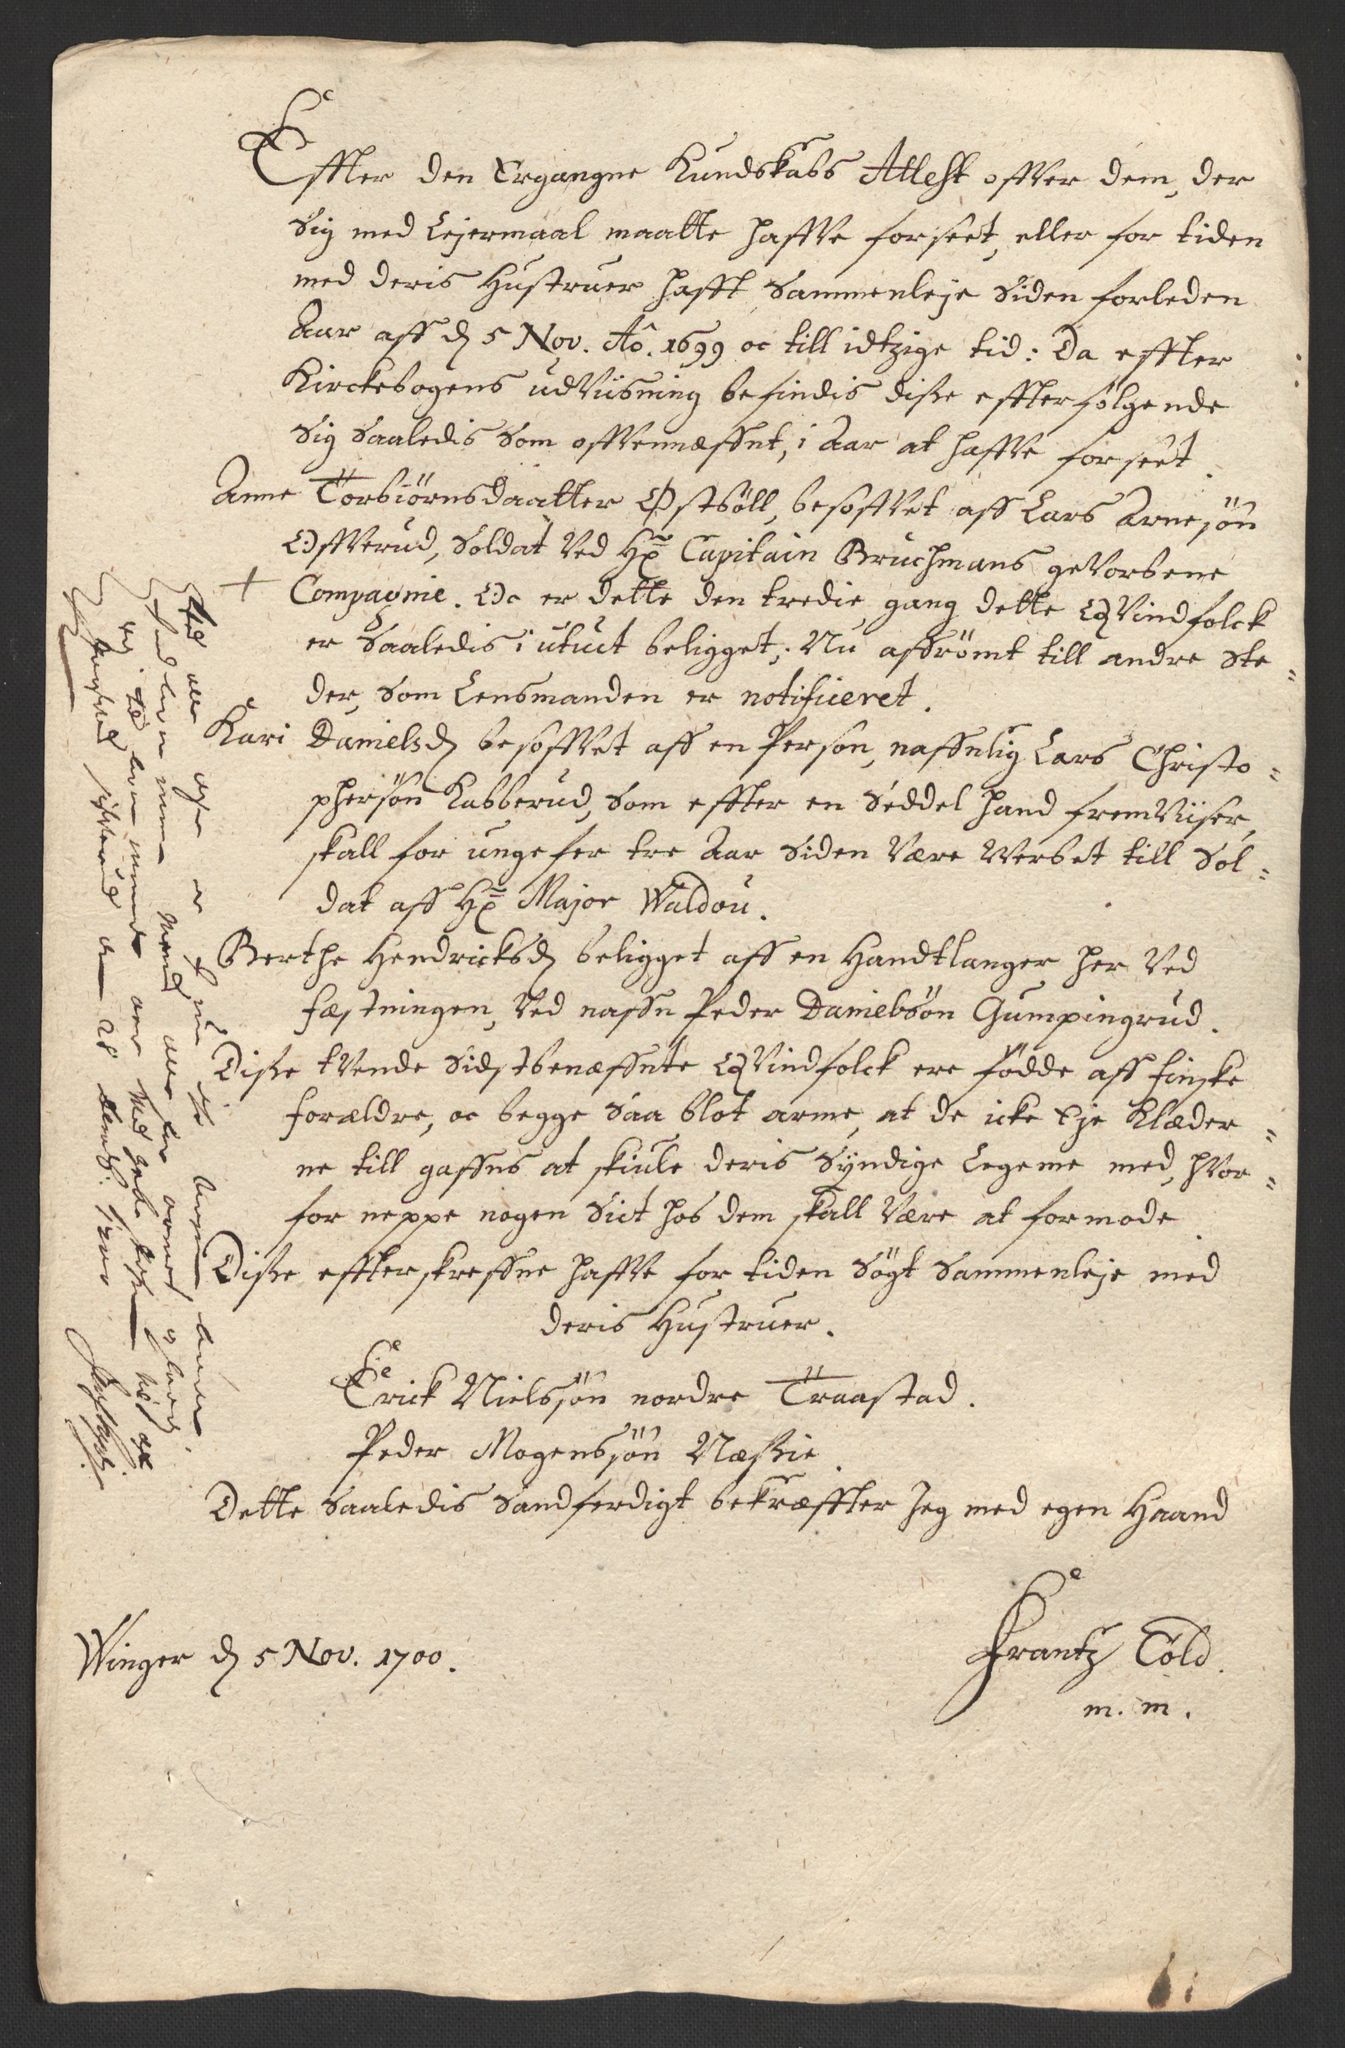 Effter den Ergangne Kundskabs Attest offver dem, der
Sig med Lejermaal maatte haffve forseet, eller for tiden
med deris Hustruer hafft Sammenleje Siden forleden
Aar aff d 5 Nov. Ao. 1699 oc till idtzige tid: Da effter
Kirckebogens udviisning befindis disse effterfølgende
Sig Saaledis Som offvennæffnt, i Aar at haffve forseet.
Anne Torbiørnsdaatter Østbøll, besoffvet aff Lars Arnesøn
Offverud, Soldat Ved Hr Capitain Bruchmans geVorbene
+ Compagnie. Oc er dette den tredie gang dette QVindfolck
er Saaledis i utuct beligget; Nu affrømt till andre Ste=
der, Som Lensmanden er notificeret.
Kari Danielsd besoffvet aff en Person, naffnlig Lars Christo=
phersøn Kabberud, Som effter en Seddel hand fremViiser,
skall for ungefer tre Aar Siden Være Verbet till Sol=
dat aff Hr Major Waldou.
Berthe Hendricksd beligget aff en Handtlanger her Ved
fæstningen, Ved naffn Peder Danielsøn Gumpingrud.
Disse tvende Sidstbenæffnte QVindfolck ere fødde aff finske
forældre, oc begge Saa blot arme, at de icke Eje Klæder=
ne till gaffns at skiule deris Syndige Legeme med, hvor=
for neppe nogen Sict hos dem skall Være at formode
Disse effterskreffne haffve for tiden Søgt Sammenleje med
deris Hustruer.
Erick Nielssøn nordre Traastad.
Peder Mogenssøn Næssie.
Dette Saaledis Sandferdigt bekræffter Jeg med egen Haand
Winger d 5 Nov. 1700.
Frantz Told.
m. m.